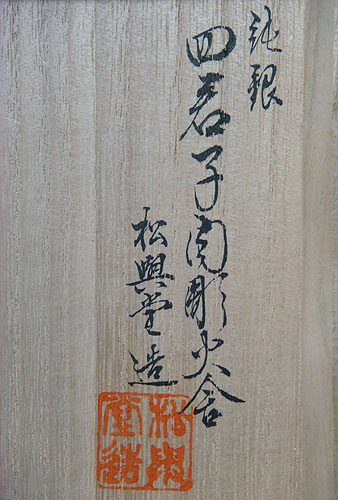 純銀
四君子肉彫火舎
松興堂造
松興堂造